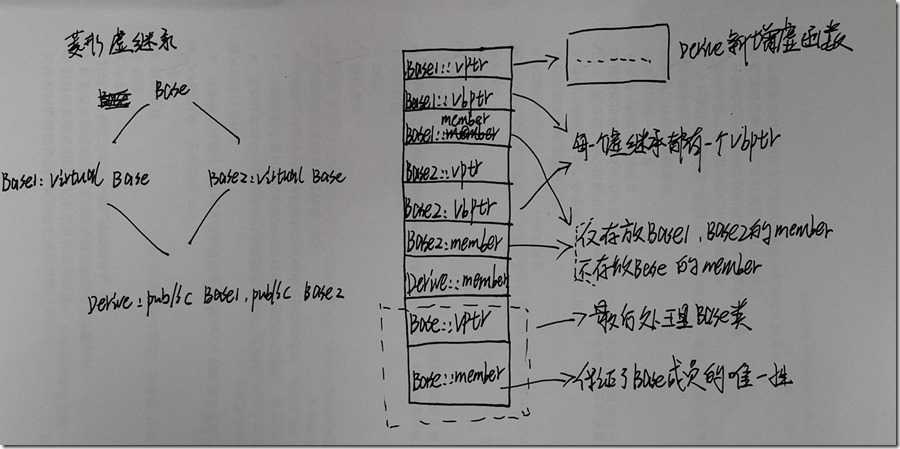 菱形虚继承
Base
Base1:virtual Base
Base2:virtual Base
Derive:public Base1,public Base2
Base1::vptr
Base1::vbptr
member
Base1::member
Base2::vptr
Base2:vbptr
Base2:member
Derive::member
Base::vptr
Base::member
Derive新增虚函数
每个虚继承都有一个vbptr
没存放Base1、Base2的member
还存放Base的member
最后处理Base类
保证了Base成员的唯一性